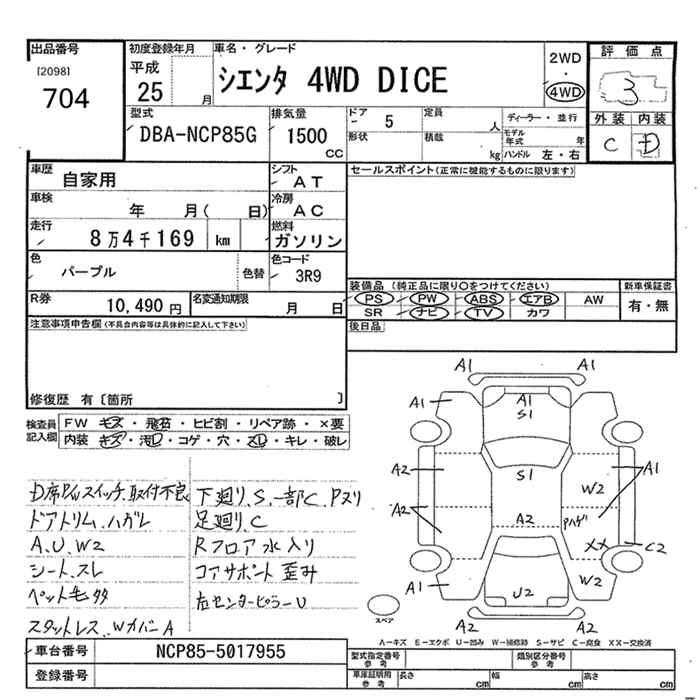 出品番号 初度登録年月 車名・グレード 評価点
[2098] 平成 2WD
704 25 月 シエンタ 4WD DICE ・ 3
4WD
型式 排気量 ドア 5 定員 人 ディーラー・並行 外装 内装
DBA-NCP85G 1500 CC 形状 積載 kg モデル年式 年 C D
ハンドル 左・右
車歴 自家用 シフト AT セールスポイント(正常に機能するものに限ります)
車検 年 月( 日) 冷房 AC
走行 8万4千169 km 燃料 ガソリン
色 パープル 色替 色コード 3R9
装備品 (純正品に限り○をつけてください) 新車保証書
R券 10,490円 名変通知期限 月 日 PS PW ABS エアB AW 有・無
SR ナビ TV カワ
注意事項申告欄(不具合内容等は具体的に記入して下さい) 後日品
修復歴 有〔箇所 〕
検査員記入欄 FW キズ・飛石・ヒビ割・リペア跡・×要
内装 キズ・汚レ・コゲ・穴・スレ・キレ・破レ
D席P/Wスイッチ、取付不良 下廻り、S、一部C、Pヌリ
ドアトリム、ハガレ 足廻り、C
A、U、W2 Rフロア水入り
シート、スレ コアサポート歪み
ペット毛多 左センターピラーU
スタットレス、WカバーA
A1 A1
A1 A1 A1
S1
A2 S1 A1
W2
A2 A2 Pハゲ
XX C2
A1 U2 W2
A2 A2
スペア
A-キズ E-エクボ U-凹み W-補修跡 S-サビ C-腐食 XX-交換済
車台番号 NCP85-5017955 型式指定番号 参考 類別区分番号 参考
登録番号 車庫証明用 参考 長さ cm 幅 cm 高さ cm